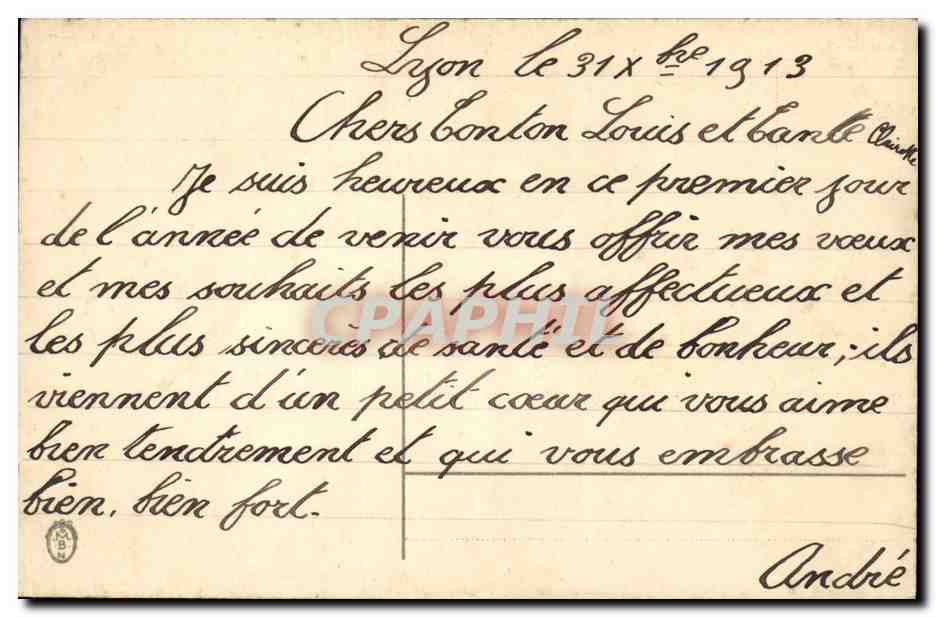 Lyon le 31 Xbre 1913
Chers tonton Louis et tante Clairette
Je suis heureux en ce premier jour
de l'année de venir vous offrir mes vœux
et mes souhaits les plus affectueux et
les plus sincères de santé et de bonheur; ils
viennent d'un petit cœur qui vous aime
bien tendrement et qui vous embrasse
bien, bien fort.
André
CPAPHIL